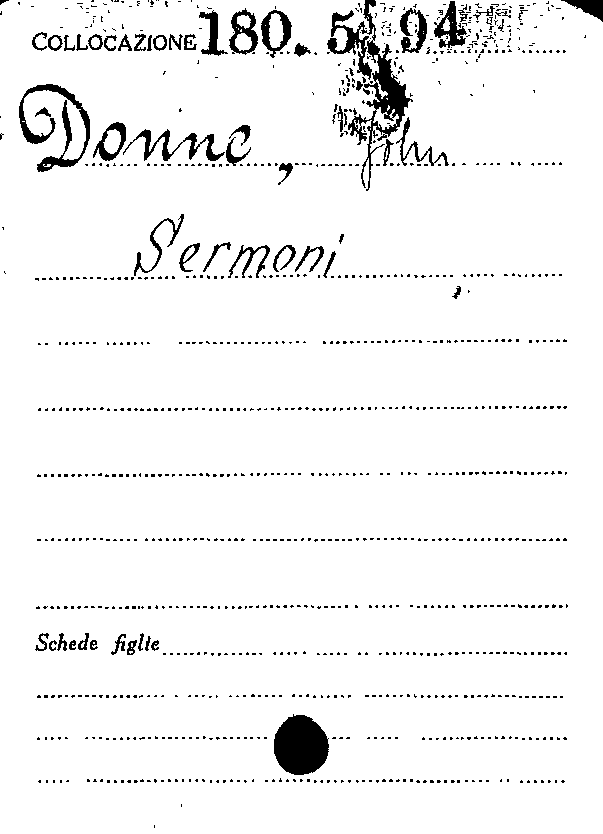 COLLOCAZIONE 180.5.94
Donne, John
Sermoni
Schede figlie